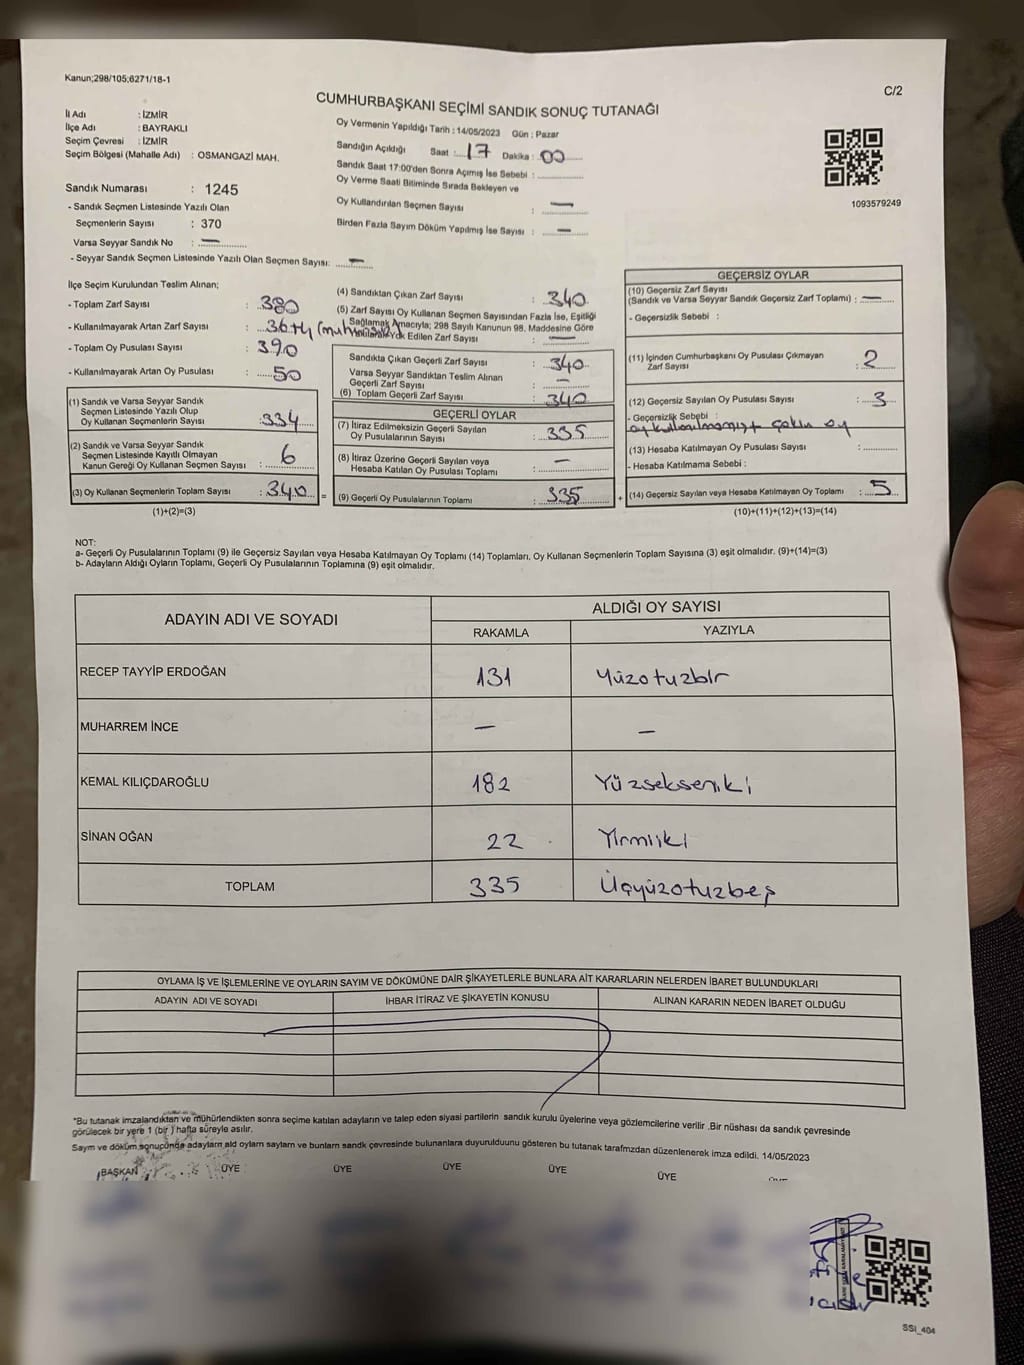 Kanun;298/105;6271/18-1
C/2
CUMHURBAŞKANI SEÇİMİ SANDIK SONUÇ TUTANAĞI
İl Adı : İZMİR
İlçe Adı : BAYRAKLI
Seçim Çevresi : İZMİR
Seçim Bölgesi (Mahalle Adı) : OSMANGAZİ MAH.
Sandık Numarası : 1245
- Sandık Seçmen Listesinde Yazılı Olan
Seçmenlerin Sayısı : 370
Varsa Seyyar Sandık No : —
- Seyyar Sandık Seçmen Listesinde Yazılı Olan Seçmen Sayısı: —
Oy Vermenin Yapıldığı Tarih : 14/05/2023 Gün : Pazar
Sandığın Açıldığı Saat : 17 Dakika : 00
Sandık Saat 17:00'den Sonra Açımış İse Sebebi :
Oy Verme Saati Bitiminde Sırada Bekleyen ve
Oy Kullandırılan Seçmen Sayısı : —
Birden Fazla Sayım Döküm Yapılmış İse Sayısı : —
1093579249
İlçe Seçim Kurulundan Teslim Alınan;
- Toplam Zarf Sayısı : 380
- Kullanılmayarak Artan Zarf Sayısı : 36+4
- Toplam Oy Pusulası Sayısı : 390
- Kullanılmayarak Artan Oy Pusulası : 50
(1) Sandık ve Varsa Seyyar Sandık
Seçmen Listesinde Yazılı Olup
Oy Kullanan Seçmenlerin Sayısı : 334
(2) Sandık ve Varsa Seyyar Sandık
Seçmen Listesinde Kayıtlı Olmayan
Kanun Gereği Oy Kullanan Seçmen Sayısı : 6
(3) Oy Kullanan Seçmenlerin Toplam Sayısı : 340 =
(1)+(2)=(3)
(4) Sandıktan Çıkan Zarf Sayısı : 340
(5) Zarf Sayısı Oy Kullanan Seçmen Sayısından Fazla İse, Eşitliği
Sağlamak Amacıyla; 298 Sayılı Kanunun 98. Maddesine Göre
Yok Edilen Zarf Sayısı : —
Sandıkta Çıkan Geçerli Zarf Sayısı : 340
Varsa Seyyar Sandıktan Teslim Alınan
Geçerli Zarf Sayısı : —
(6) Toplam Geçerli Zarf Sayısı : 340
GEÇERLİ OYLAR
(7) İtiraz Edilmeksizin Geçerli Sayılan
Oy Pusulalarının Sayısı : 335
(8) İtiraz Üzerine Geçerli Sayılan veya
Hesaba Katılan Oy Pusulası Toplamı : —
(9) Geçerli Oy Pusulalarının Toplamı : 335 +
GEÇERSİZ OYLAR
(10) Geçersiz Zarf Sayısı
(Sandık ve Varsa Seyyar Sandık Geçersiz Zarf Toplamı) : —
- Geçersizlik Sebebi :
(11) İçinden Cumhurbaşkanı Oy Pusulası Çıkmayan
Zarf Sayısı : 2
(12) Geçersiz Sayılan Oy Pusulası Sayısı : 3
- Geçersizlik Sebebi :
oy kullanılmamış+ çoklu oy
(13) Hesaba Katılmayan Oy Pusulası Sayısı :
- Hesaba Katılmama Sebebi :
(14) Geçersiz Sayılan veya Hesaba Katılmayan Oy Toplamı : 5
(10)+(11)+(12)+(13)=(14)
NOT:
a- Geçerli Oy Pusulalarının Toplamı (9) ile Geçersiz Sayılan veya Hesaba Katılmayan Oy Toplamı (14) Toplamları, Oy Kullanan Seçmenlerin Toplam Sayısına (3) eşit olmalıdır. (9)+(14)=(3)
b- Adayların Aldığı Oyların Toplamı, Geçerli Oy Pusulalarının Toplamına (9) eşit olmalıdır.
ADAYIN ADI VE SOYADI
ALDIĞI OY SAYISI
RAKAMLA YAZIYLA
RECEP TAYYİP ERDOĞAN 131 Yüzotuzbir
MUHARREM İNCE — —
KEMAL KILIÇDAROĞLU 182 Yüzsekseniki
SİNAN OĞAN 22 Yirmiiki
TOPLAM 335 Üçyüzotuzbeş
OYLAMA İŞ VE İŞLEMLERİNE VE OYLARIN SAYIM VE DÖKÜMÜNE DAİR ŞİKAYETLERLE BUNLARA AİT KARARLARIN NELERDEN İBARET BULUNDUKLARI
ADAYIN ADI VE SOYADI İHBAR İTİRAZ VE ŞİKAYETİN KONUSU ALINAN KARARIN NEDEN İBARET OLDUĞU
*Bu tutanak imzalandıktan ve mühürlendikten sonra seçime katılan adayların ve talep eden siyasi partilerin sandık kurulu üyelerine veya gözlemcilerine verilir .Bir nüshası da sandık çevresinde
görülecek bir yere 1 (bir ) hafta süreyle asılır.
Saym ve döküm sonucunda adaylarm ald oylarn saylarn ve bunlarn sandk çevresinde bulunanlara duyurulduunu gösteren bu tutanak tarafmzdan düzenlenerek imza edildi. 14/05/2023
BAŞKAN ÜYE ÜYE ÜYE ÜYE ÜYE
SSI_404